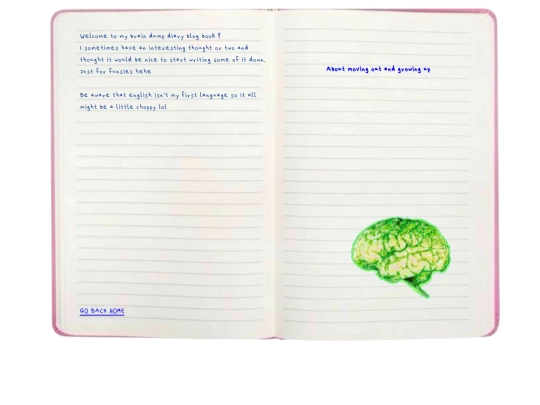 Welcome to my brain dump diary blog book !
I sometimes have an interesting thought or two and
thought it would be nice to start writing some of it down.
Just for funsies hehe
Be aware that english isn't my first language so it all
might be a little choppy lol
GO BACK HOME
About moving out and growing up